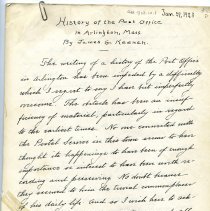 Jan. 19, 1928
History of the Post Office
in Arlington, Mass
By James G. Keenan.
The writing of a history of the Post Office
in Arlington has been impeded by a difficulty
which I regret to say I have but imperfectly
overcome. This obstacle has been an
of material, particularly in regard
to the earliest times. No one connected with
the Postal Service in this town seems to have
thought its happenings to have been of enough
importance or interest to have been worth re-
cording and preserving. No doubt because
they seemed to him the trivial commonplaces
of his daily life. And so I wish here to ask